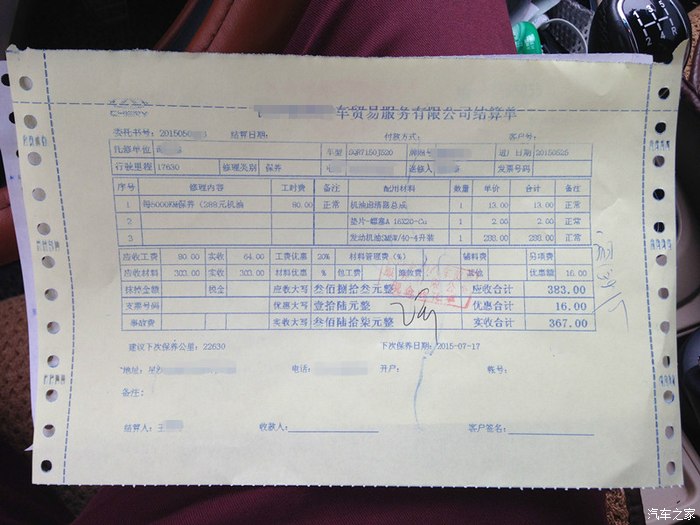 CHERY
车贸易服务有限公司结算单
委托书号：201505 结算日期： 付款方式： 客户号：
托修单位 车型 SQR7150J520 牌照号 进厂日期 20150525
行驶里程 17630 修理类别 保养 送修人 发票号码
序号 修理内容 工时费 备注 配用材料 数量 单价 合计 备注
1 每5000KM保养（288元机油 80.00 正常 机油滤清器总成 1 13.00 13.00 正常
2 垫片-螺塞A 16X20-Cu 1 2.00 2.00 正常
3 发动机油SM5W/40-4升装 1 288.00 288.00 正常
应收工费 80.00 实收 64.00 工费优惠 20% 材料管理费（%） 辅料费 另项费
应收材料 303.00 实收 303.00 材料优惠 % 包工费 其他 优惠额 16.00
抹掉金额 税金 应收大写 叁佰捌拾叁元整 应收合计 383.00
支票号码 优惠大写 壹拾陆元整 优惠合计 16.00
事故费 实收大写 叁佰陆拾柒元整 实收合计 367.00
建议下次保养公里：22630 下次保养日期：2015-07-17
地址： 电话： 开户： 账号：
备注：
结算人：王 收款人： 客户签名：
汽车之家